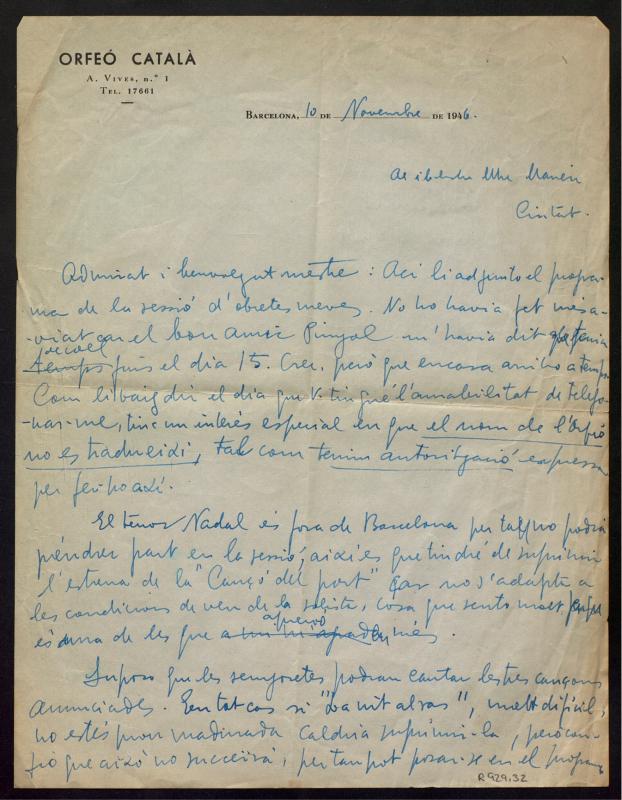 ORFEÓ CATALÀ
A. Vives, n.º 1
Tel. 17661
Barcelona, 10 de Novembre de 1946.
Ciutat.
Admirat i benvolgut mestre: Ací li adjunto el progra-
ma de la sessió d'obretes meves. No ho havia fet més a-
-viat car el bon amic Pinyol m'havia dit que tenia
temps fins el dia 15. Crec, però que encara arribo a temps
Com li vaig dir el dia que V. tingué l'amabilitat de telefo-
-nar-me, tinc un interés especial en que el nom de l'Orfeó
no es tradueixi, tal com tenim autorització expressa
per fer-ho així.
El tenor Nadal és fora de Barcelona per tal no podrà
péndrer part en la sessió; així es que tindré de suprimir
l'estrena de la "Cançó del port" car no s'adapta a
les condicions de veu de la solista, cosa que sento molt perque
és una de les que aprecio més.
Suposo que les senyoretes podran cantar les tres cançons
anunciades. En tot cas si "La nit al ras", molt difícil,
no estés prou madurada caldria suprimir-la, però con-
fio que això no succeirà, per tan pot posar-se en el programa
R 929,32